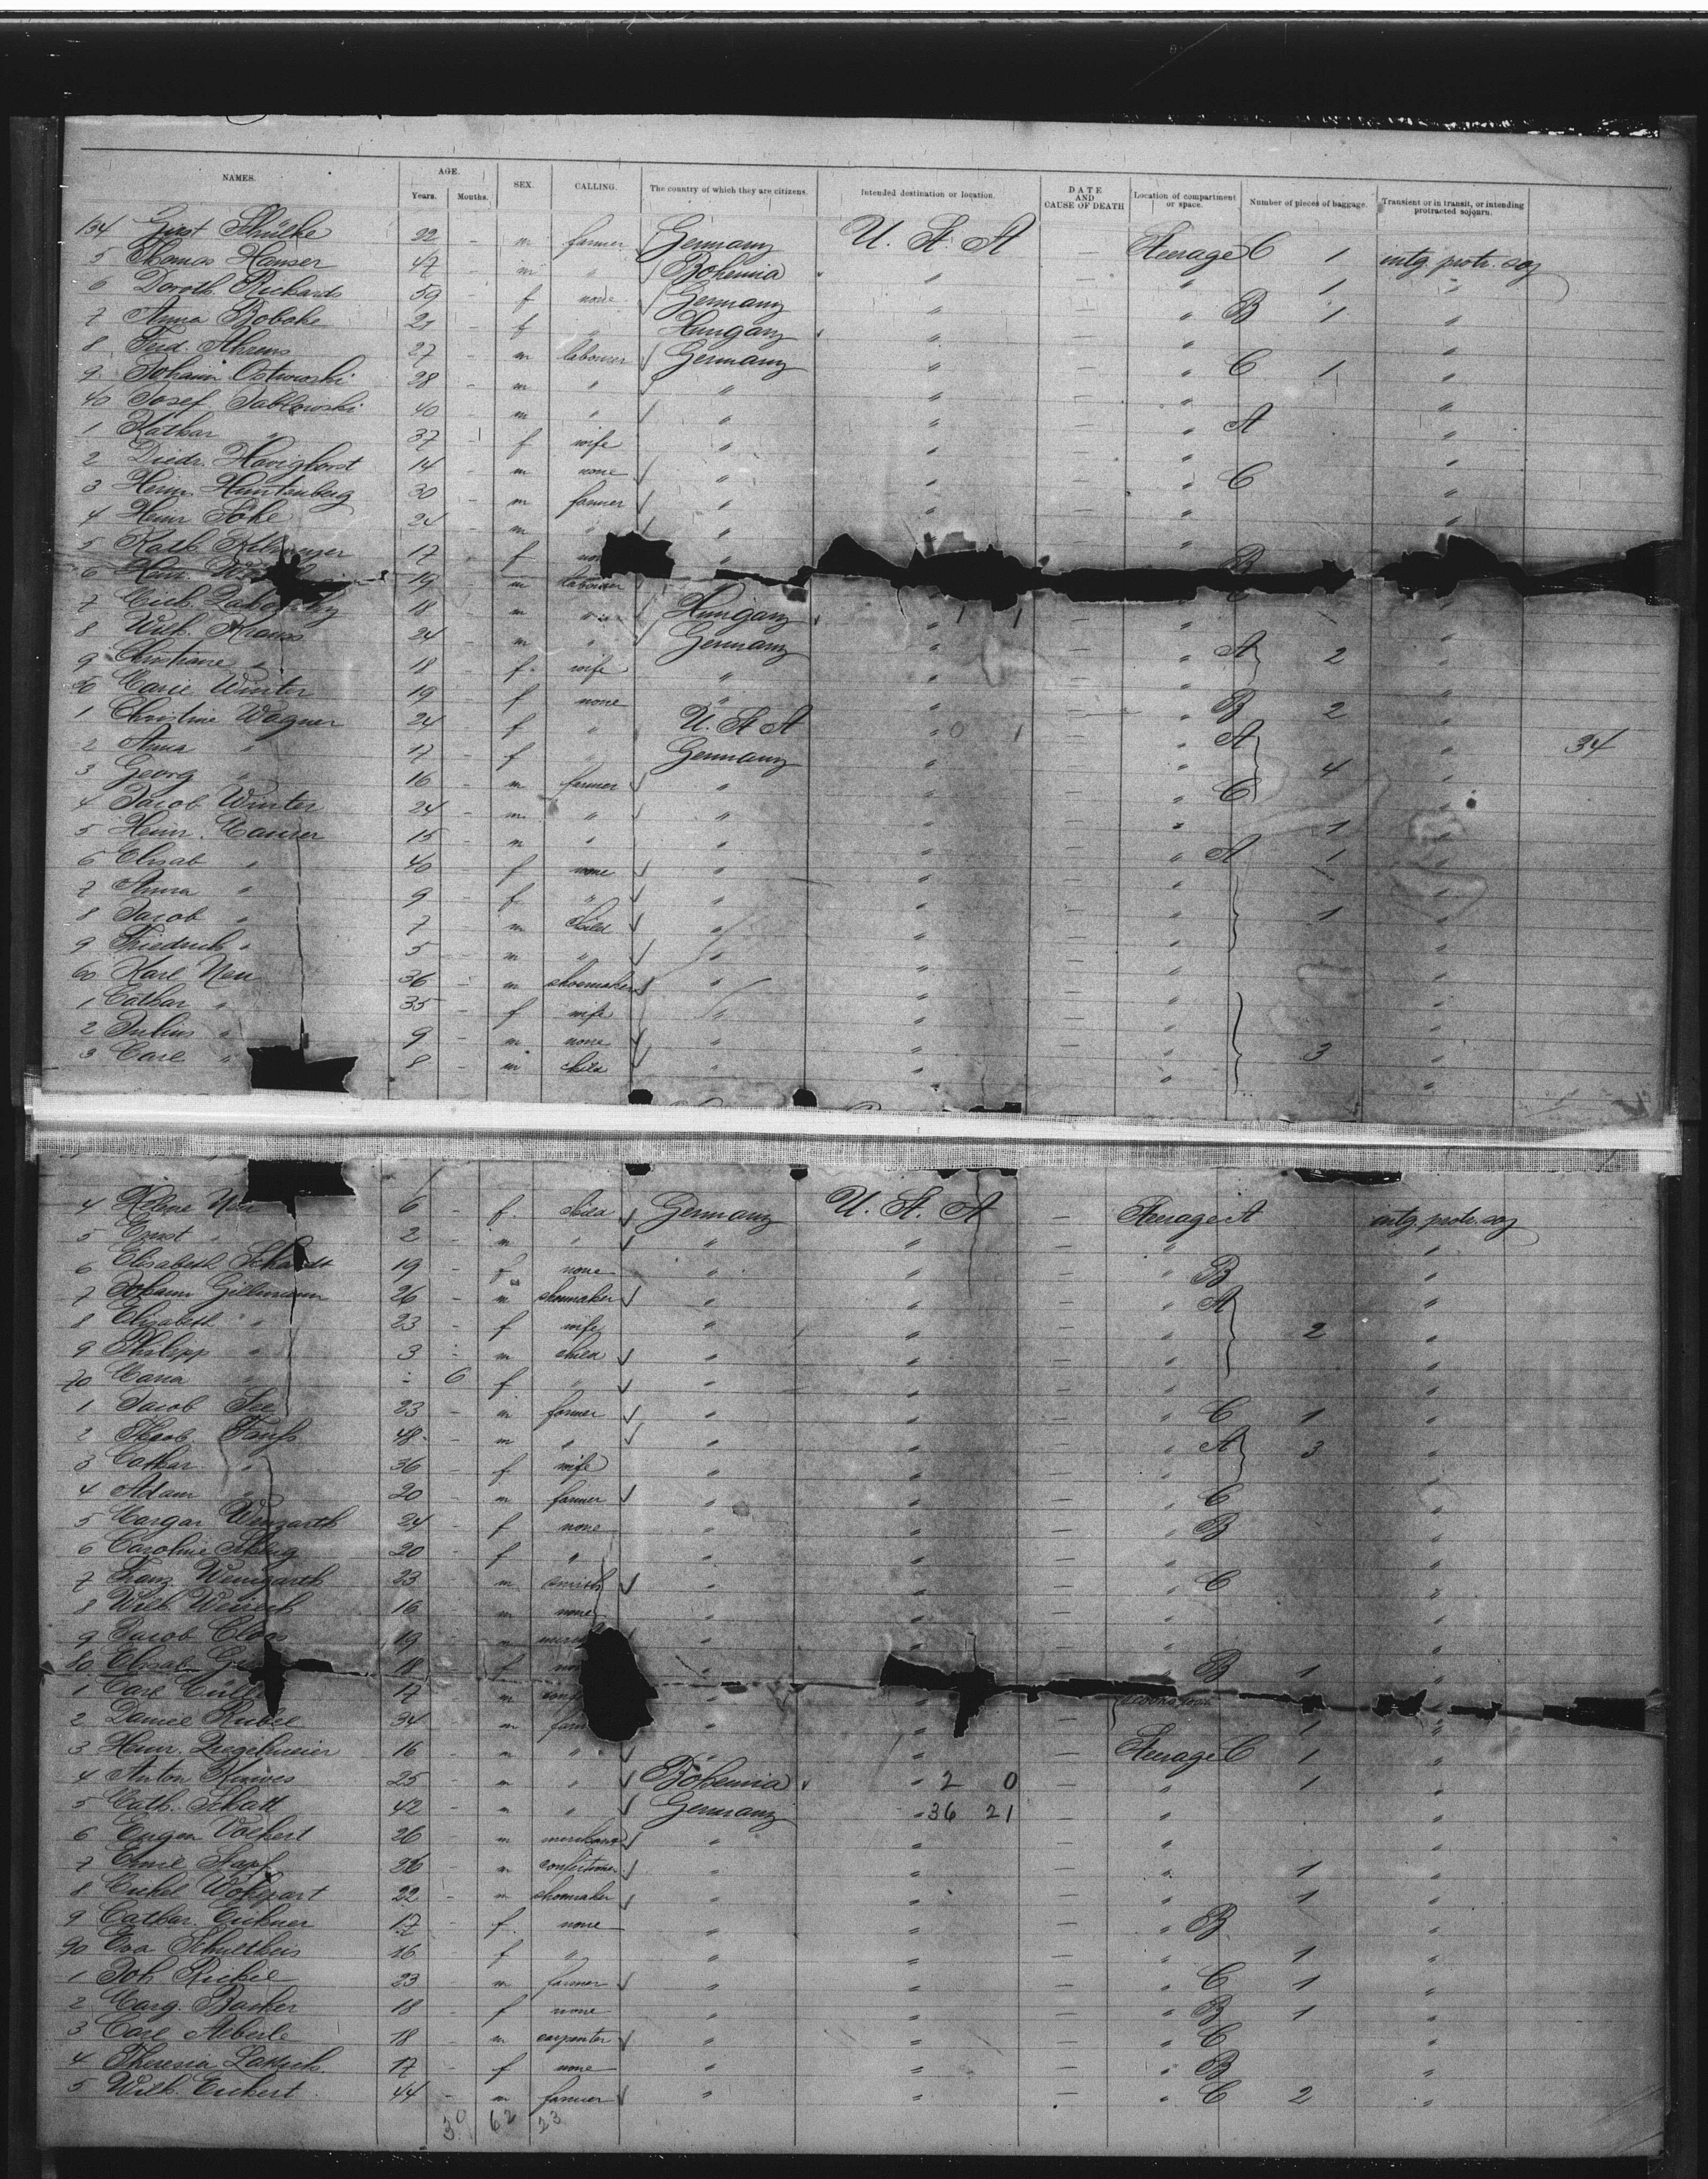 NAMES. AGE. SEX. CALLING. The country of which they are citizens. Intended destination or location. DATE AND CAUSE OF DEATH Location of compartment or space. Number of pieces of baggage. Transient or in transit, or intending protracted sojourn.
Years. Months.
134 Schülke 22 - m farmer Germany U. St. A — Steerage C 1 intg. protr. soj
5 Thomas Hanser 47 - m " Bohemia " — " 1 "
6 Doroth. Rickards 59 - f none Germany " — " B 1 "
7 Anna Boboke 21 - f " Hungary " — " "
8 Ferd. Ahrens 27 - m labourer Germany " — " C 1 "
9 Johann Ostrowski 28 - m " " " — " "
40 Josef Jablowski 40 - m " " " — " A "
1 Kathar " 37 - f wife " " — " "
2 Diedr. Havighorst 14 - m none " " — " C "
3 Heinr. Huntenberg 30 - m farmer " " — " "
4 Heinr 24 - m " " " — "
5 Kath. 17 - f " B
6 Heinr. 19 - m labourer
7 Mich. 18 - m " Hungary " 1 1 "
8 Wilh. Krauss 24 - m " Germany " — " A 2 "
9 Christiane " 18 - f wife " " — " "
50 Marie Winter 19 - f none " " — " B 2 "
1 Christine Wagner 24 - f " U. St. A " 0 1 — " A "
2 Anna " 17 - f " Germany " — " 4 " 34
3 Georg " 16 - m farmer " " — " C "
4 Jacob Winter 24 - m " " " — " 1 "
5 Heinr. Maurer 15 - m " " " — " A 1 "
6 Elisab " 40 - f none " " — " "
7 Anna " 9 - f " " " — " 1 "
8 Jacob " 7 - m child " " — " "
9 Friedrich " 5 - m " " " — " "
60 Karl Neu 36 - m shoemaker " " — " "
1 Cathar " 35 - f wife " " — " "
2 Julius " 9 - m none " " — " 3 "
3 Carl " 8 - m child " " — " "
4 Helene Neu 6 - f. child Germany U. St. A — Steerage A intg. protr. soj
5 Ernst " 2 - m " " " — " "
6 Elisabeth 19 - f none " " — " B "
7 Johann Gillmann 26 - m shoemaker " " — " A "
8 Elisabeth " 23 - f wife " " — " 2 "
9 Philipp " 3 - m child " " — " "
70 Maria " - 6 f " " " — " "
1 Jacob 23 - m farmer " " — " C 1 "
2 Jacob 48 - m " " " — " A 3 "
3 Cathar. " 36 - f wife " " — " "
4 Adam " 20 - m farmer " " — " C "
5 Margar Weingarth 24 - f none " " — " B "
6 Caroline 20 - f " " " — " "
7 Franz Weingarth 23 - m smith " " — " C "
8 Wilh. 16 - m none " " — " "
9 Jacob Claos 19 - m " " — " "
80 Elisab. 18 - f " — " B 1 "
1 Carl 17 - m " "
2 Daniel Rubel 34 - m " " — 1 "
3 Heinr. Ziegelmeier 16 - m " " " — Steerage C 1 "
4 Anton 25 - m " Bohemia " 2 0 — " 1 "
5 Cath. Schatt 42 - m " Germany " 36 21 — " "
6 Eugen Volkert 26 - m merchant " " — " "
7 Emil Stapf 26 - m confectioner " " — " 1 "
8 22 - m shoemaker " " — " 1 "
9 Cathar. Eichner 17 - f. none " " — " B "
90 Eva Schultheis 16 - f " " " — " 1 "
1 Joh. 23 - m farmer " " — " C 1 "
2 Marg. Barker 18 - f none " " — " B 1 "
3 Carl Aeberle 18 - m carpenter " " — " C "
4 Theresia 17 - f none " " — " B "
5 Wilh. Eichert 44 - m farmer " " — " C 2 "
39 62 23